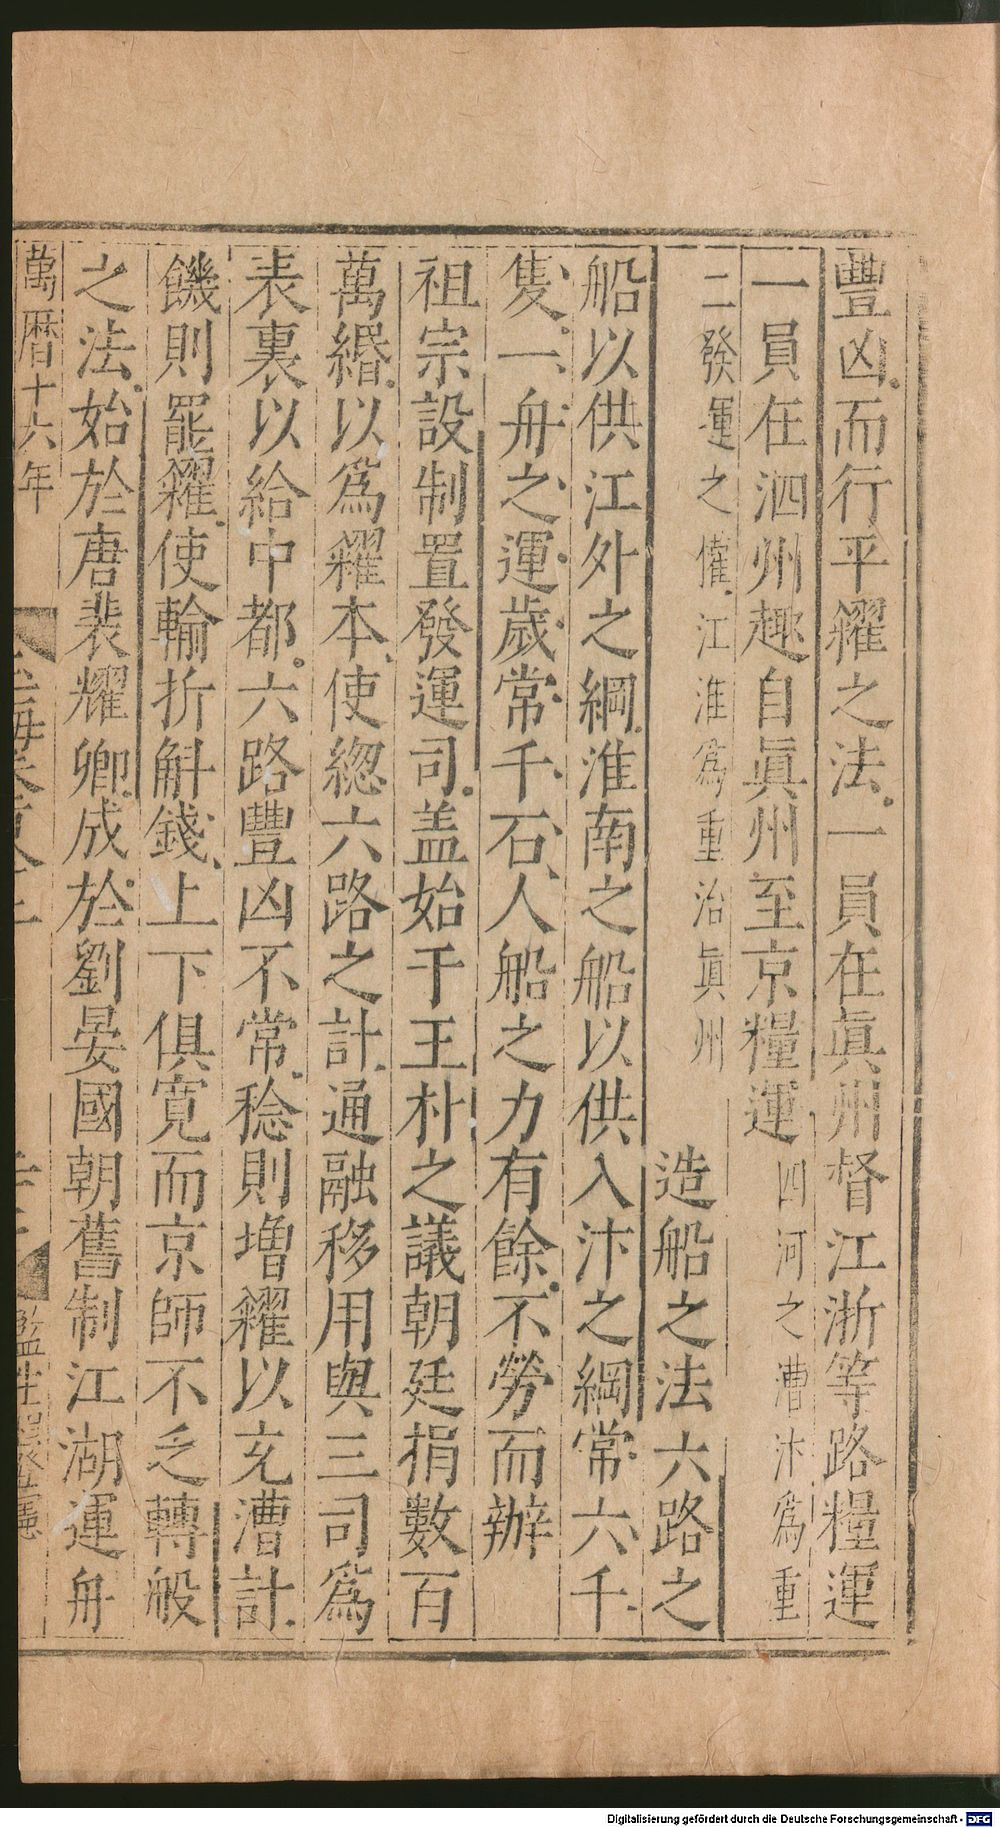 豐凶而行平糴之法一員在眞州督江浙等路糧運
一員在泗州趣自眞州至京糧運四河之漕汴爲重
二發運之權江淮爲重治眞州 造船之法六路之
船以供江外之綱淮南之船以供入汴之綱常六千
隻一舟之運歲常千石人船之力有餘不勞而辦
祖宗設制置發運司盖始于王朴之議朝廷捐數百
萬緡以爲糴本使緫六路之計通融移用與三司爲
表裏以給中都六路豐凶不常稔則增糴以充漕計
饑則罷糴使輸折斛錢上下俱寛而京師不乏轉般
之法始於唐裴耀卿成於劉晏國朝舊制江湖運舟
萬暦十六年
玉海卷百八十二
監生
Digitalisierung gefördert durch die Deutsche Forschungsgemeinschaft - DFG